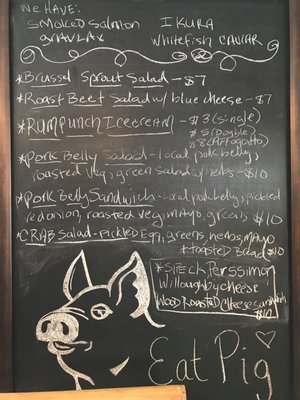 We HAVE:
SMOKED SALMON IKURA
GRAVLAX WHITEFISH CAVIAR
*Brussel Sprout Salad - $7
*Roast Beet Salad w/ blue cheese - $7
*RUM PUNCH Icecream - $3 (single)
$5 (Double)
$8 (Affogatto)
*Pork Belly Salad - local pork belly,
roasted veg, green salad w/ herbs - $10
*Pork Belly Sandwich - local pork belly, pickled
red onion, roasted veg, mayo, greens $10
*CRAB Salad - Pickled Egg, greens, herbs, mayo
toasted Bread $10
*SPECK Perssimon
Willoughby cheese
Wood Roasted Cheese sandwich
$12
Eat Pig